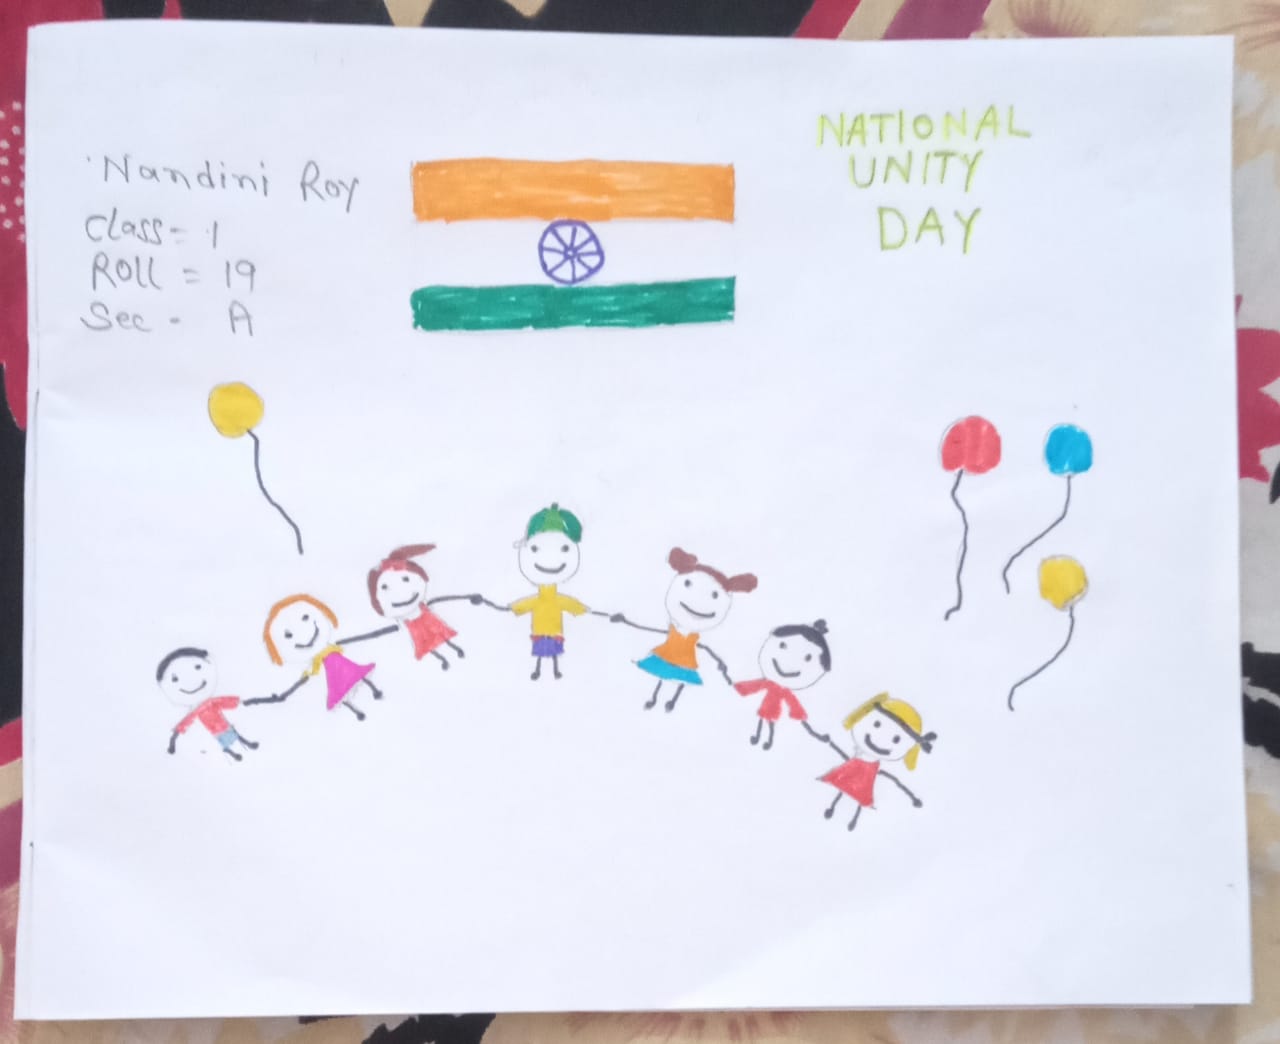 Nandini Roy
Class = 1
Roll = 19
Sec - A
NATIONAL
UNITY
DAY